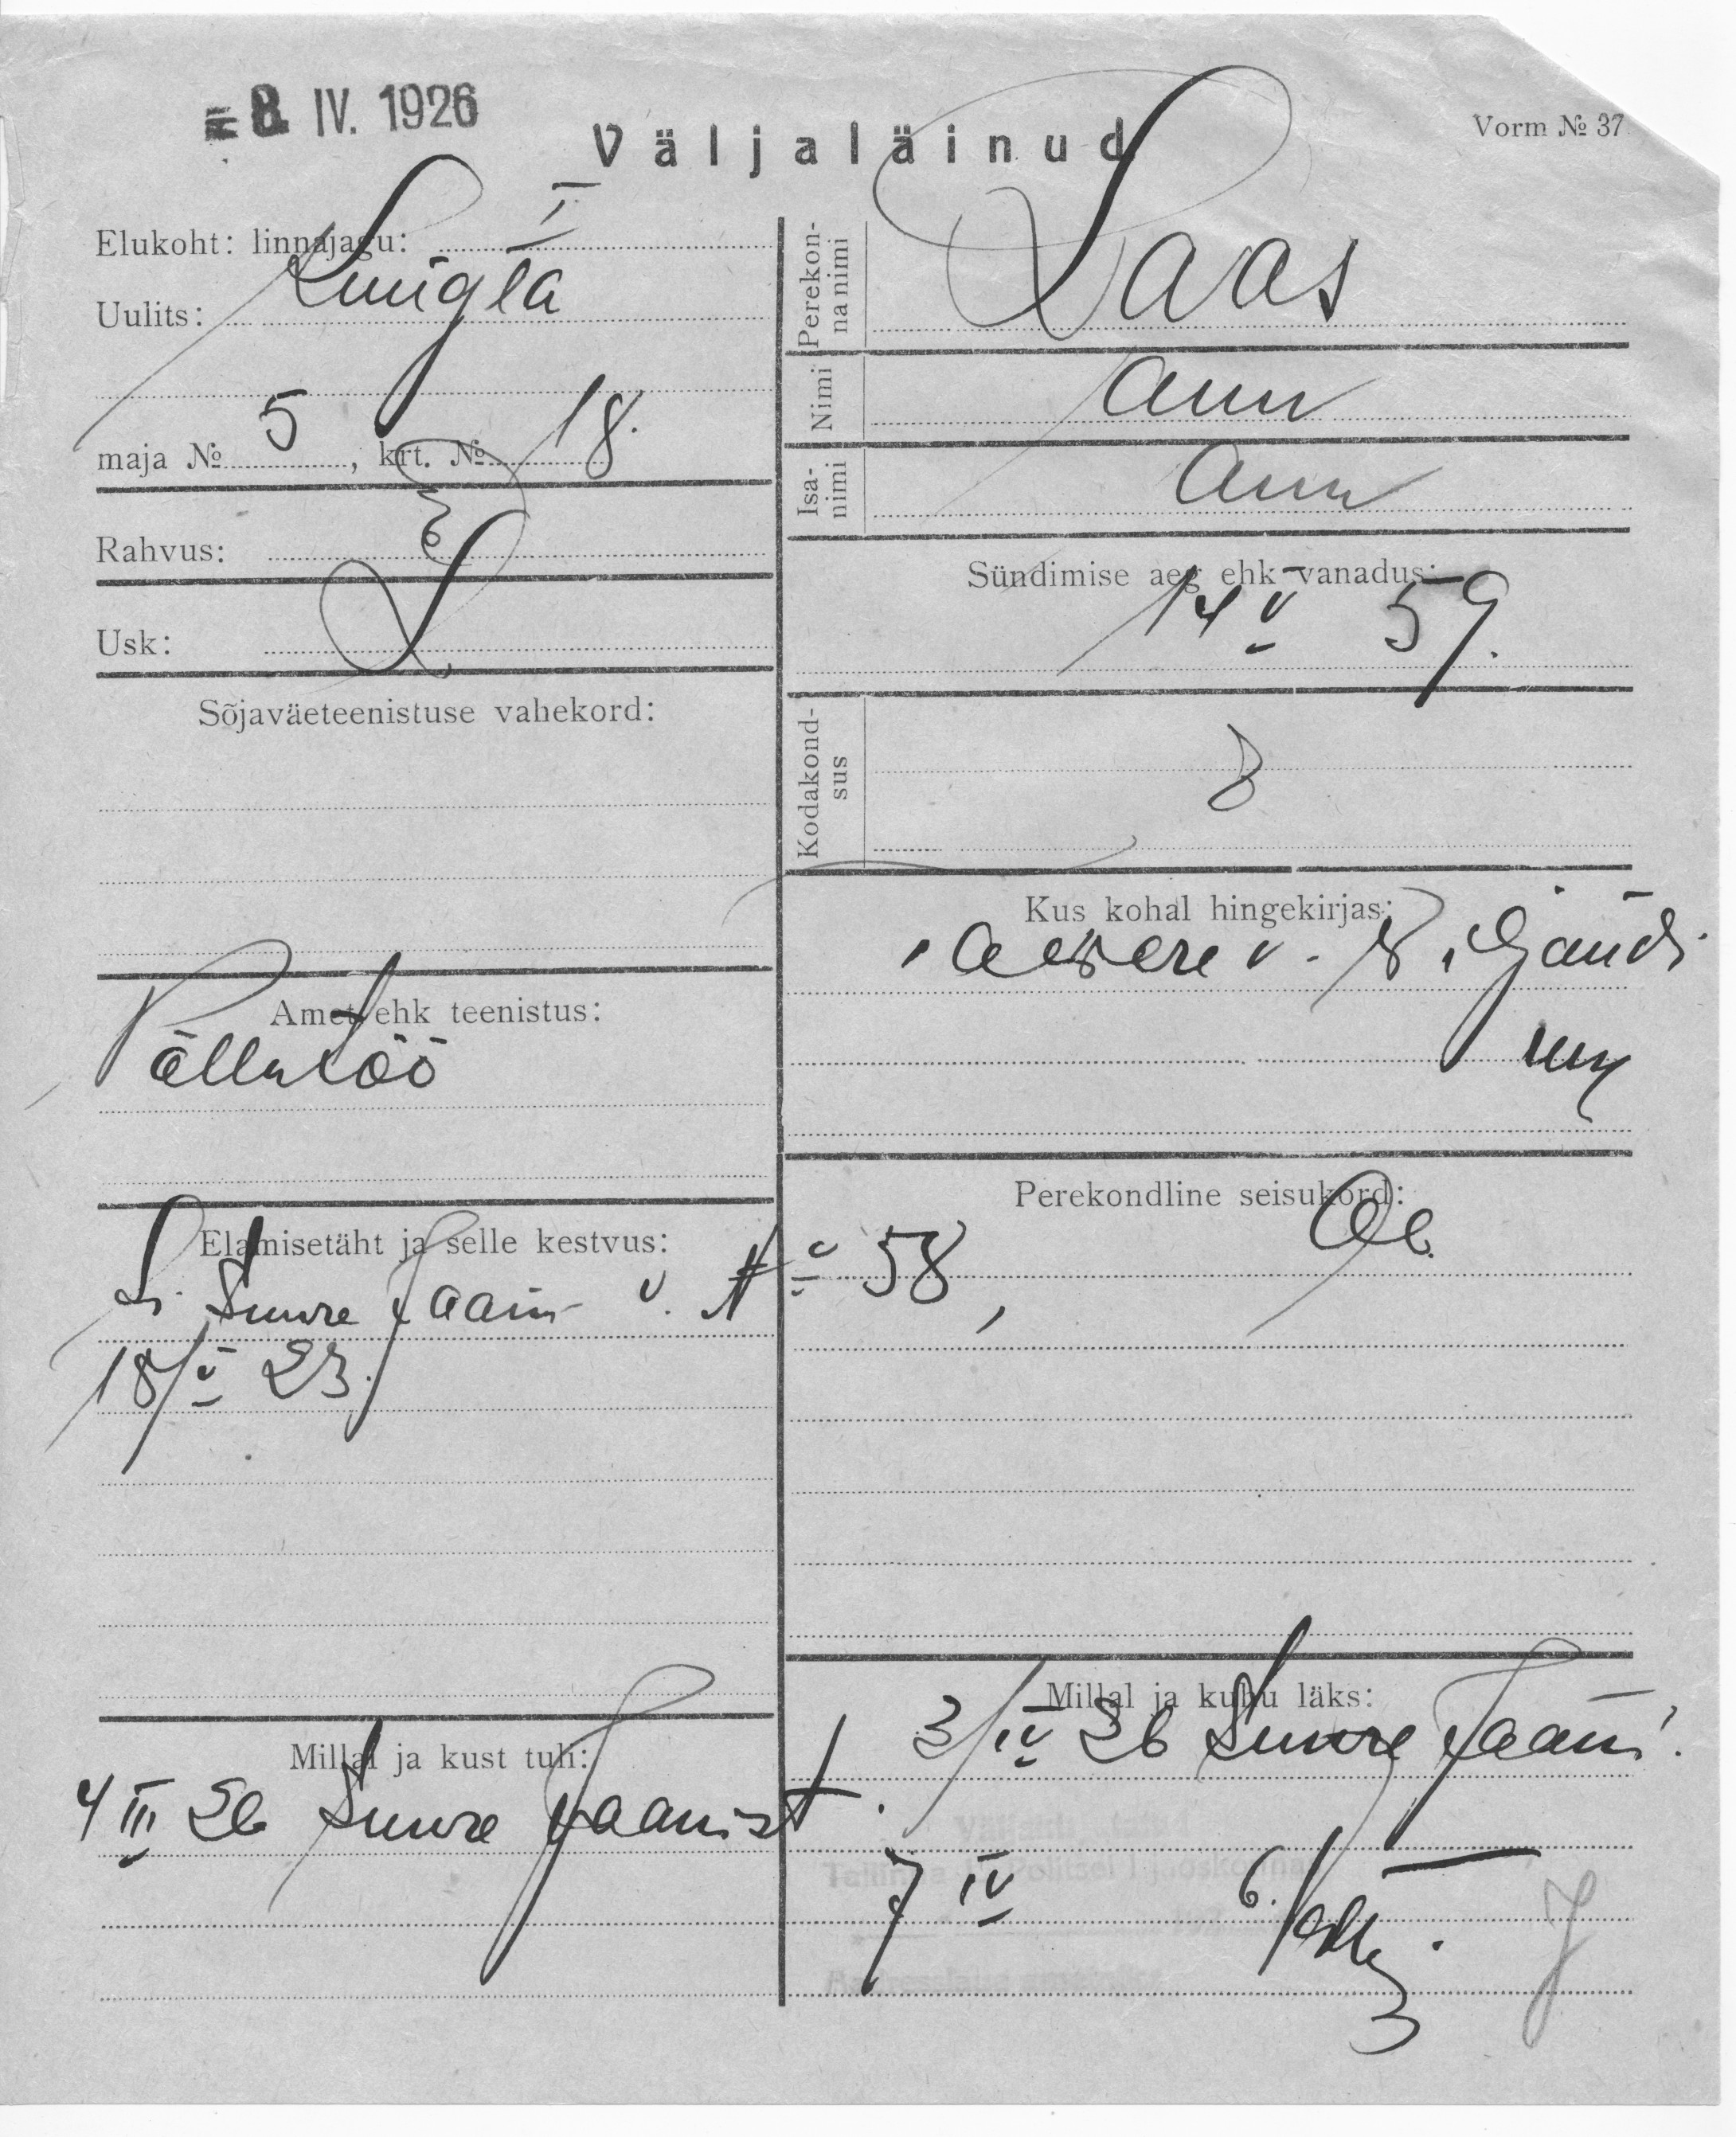 8 IV. 1926
Väljaläinud
Vorm № 37
Elukoht: linnajagu: I
Uulits:
maja № 5, krt. № 18.
Rahvus: E
Usk: L
Sõjaväeteenistuse vahekord:
Amet ehk teenistus:
Põllutöö
Elamisetäht ja selle kestvus:
Suure Jaani v. № 58,
18/V 23.
Millal ja kust tuli:
4 III 26 Suure Jaanist.
Perekonna nimi
Laas
Nimi
Ann
Isanimi
Ann
Sündimise aeg ehk vanadus:
14 V 59.
Kodakondsus
Kus kohal hingekirjas:
v. Wiljandi
Perekondline seisukord:
Ab.
Millal ja kuhu läks:
3/IV 26 Suure Jaani.
7 IV 6.
Tallinna Politsei jaoskonna